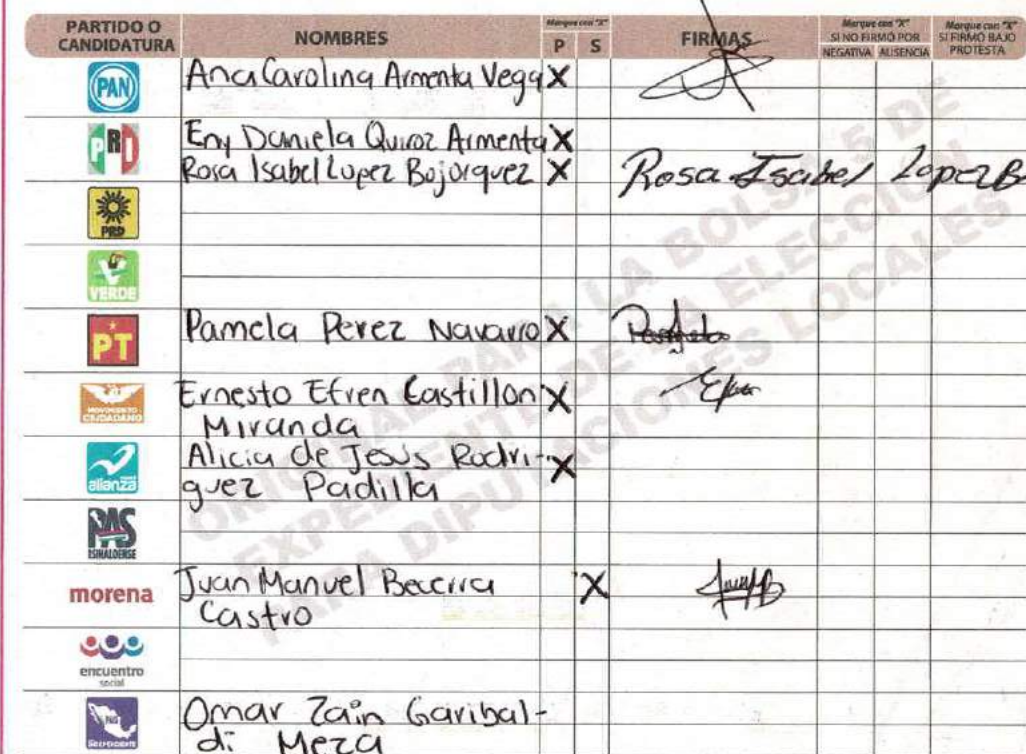 PARTIDO O CANDIDATURA
NOMBRES
Marque con "X"
P S
FIRMAS
Marque con "X" SI NO FIRMÓ POR
NEGATIVA AUSENCIA
Marque con "X" SI FIRMÓ BAJO PROTESTA
PAN
Ana Carolina Armenta Vega X
PRI
Eny Daniela Quiroz Armenta X
Rosa Isabel Lopez Bojorquez X Rosa Isabel Lopez B
PRD
VERDE
PT
Pamela Perez Navarro X
MOVIMIENTO CIUDADANO
Ernesto Efren Castillon X
Miranda
alianza
Alicia de Jesus Rodri- X
guez Padilla
PAS
SINALOENSE
morena
Juan Manuel Becerra X
Castro
encuentro
social
Omar Zain Garibal-
di Meza
INDEPENDIENTE
ORIGINAL PARA LA BOLSA 5 DE
EXPEDIENTE DE LA ELECCIÓN
PARA DIPUTACIONES LOCALES